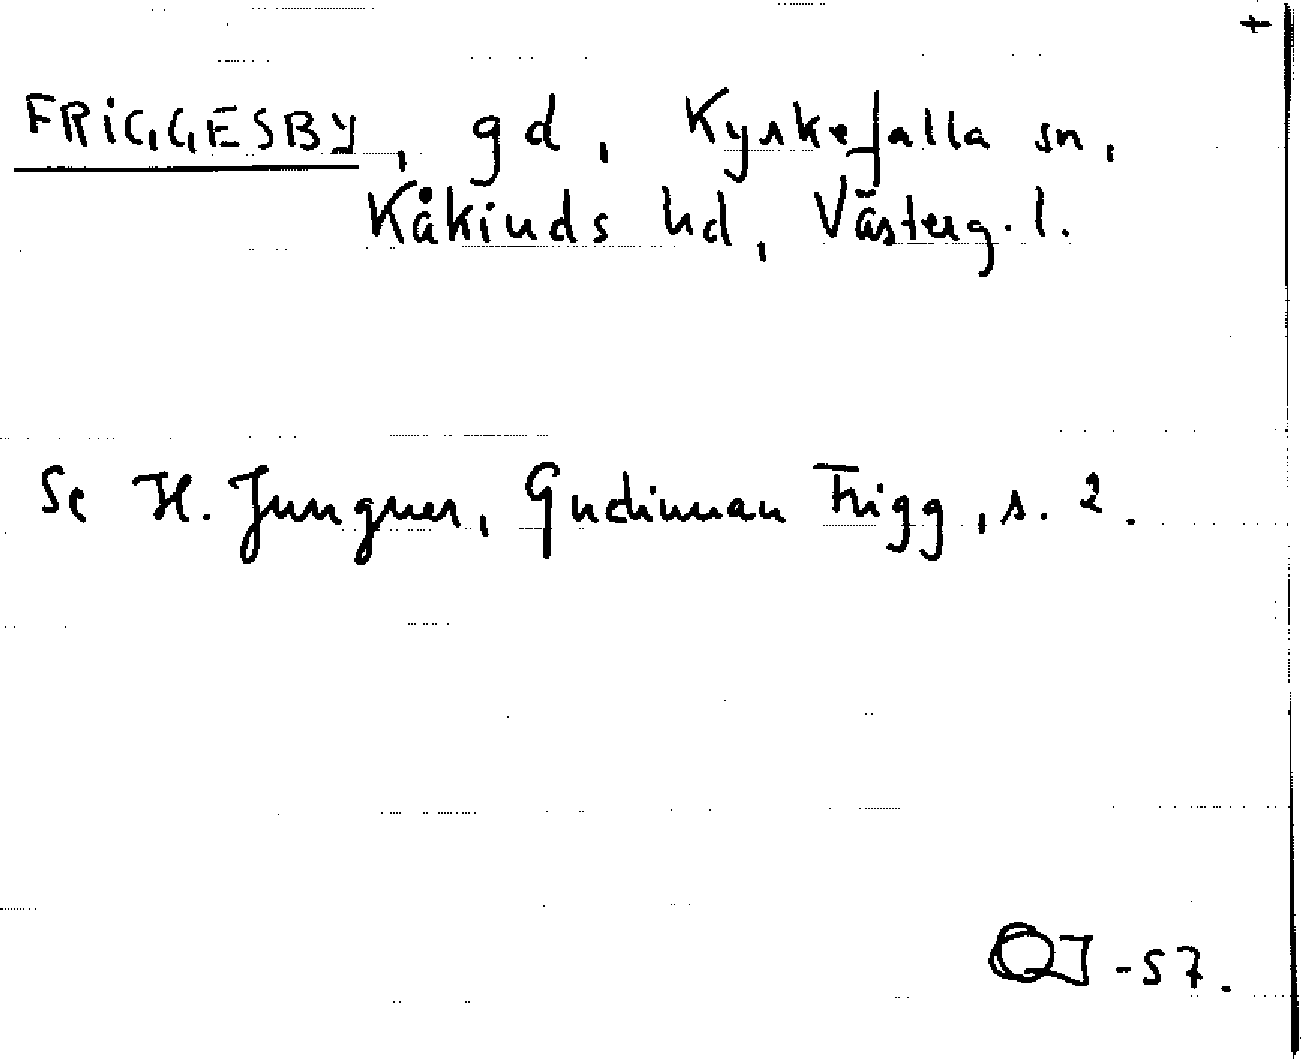 +
FRIGGESBY, gd, Kyrkefalla sn,
Kåkinds hd, Västerg. l.
Se H. Jungner, Gudinnan Frigg, s. 2.
-57.